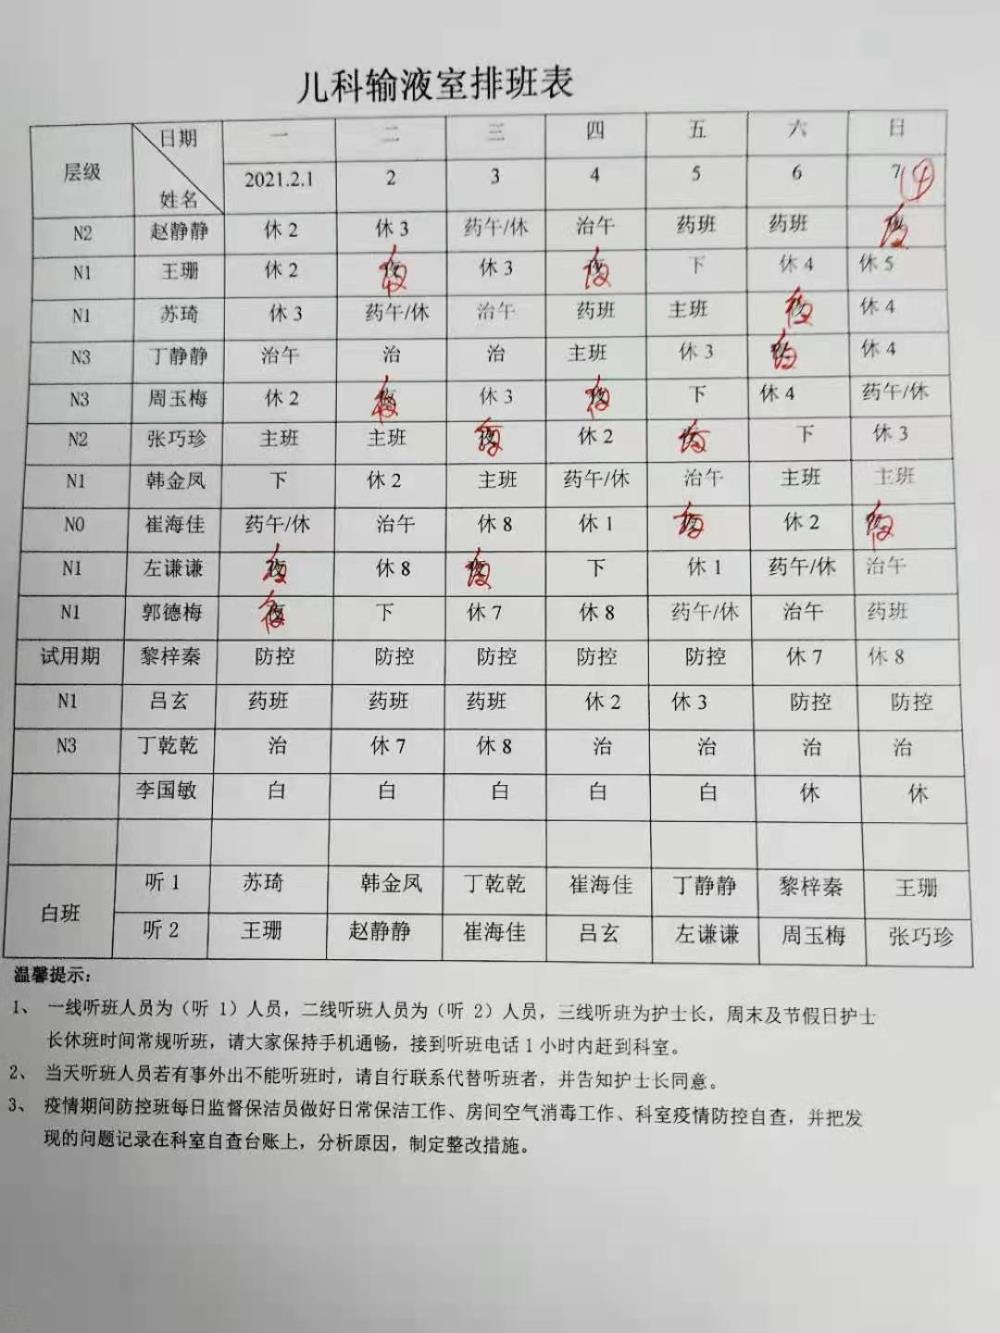 儿科输液室排班表
层级 日期 姓名 一 二 三 四 五 六 日
2021.2.1 2 3 4 5 6 7 ④
N2 赵静静 休2 休3 药午/休 治午 药班 药班 夜
N1 王珊 休2 夜 休3 夜 下 休4 休5
N1 苏琦 休3 药午/休 治午 药班 主班 夜 休4
N3 丁静静 治午 治 治 主班 休3 夜 休4
N3 周玉梅 休2 夜 休3 夜 下 休4 药午/休
N2 张巧珍 主班 主班 夜 休2 夜 下 休3
N1 韩金凤 下 休2 主班 药午/休 治午 主班 主班
N0 崔海佳 药午/休 治午 休8 休1 夜 休2 夜
N1 左谦谦 夜 休8 夜 下 休1 药午/休 治午
N1 郭德梅 夜 下 休7 休8 药午/休 治午 药班
试用期 黎梓秦 防控 防控 防控 防控 防控 休7 休8
N1 吕玄 药班 药班 药班 休2 休3 防控 防控
N3 丁乾乾 治 休7 休8 治 治 治 治
李国敏 白 白 白 白 白 休 休
白班 听1 苏琦 韩金凤 丁乾乾 崔海佳 丁静静 黎梓秦 王珊
听2 王珊 赵静静 崔海佳 吕玄 左谦谦 周玉梅 张巧珍
温馨提示:
1、 一线听班人员为（听 1）人员，二线听班人员为（听 2）人员，三线听班为护士长，周末及节假日护士
长休班时间常规听班，请大家保持手机通畅，接到听班电话1小时内赶到科室。
2、 当天听班人员若有事外出不能听班时，请自行联系代替听班者，并告知护士长同意。
3、 疫情期间防控班每日监督保洁员做好日常保洁工作、房间空气消毒工作、科室疫情防控自查，并把发
现的问题记录在科室自查台账上，分析原因，制定整改措施。